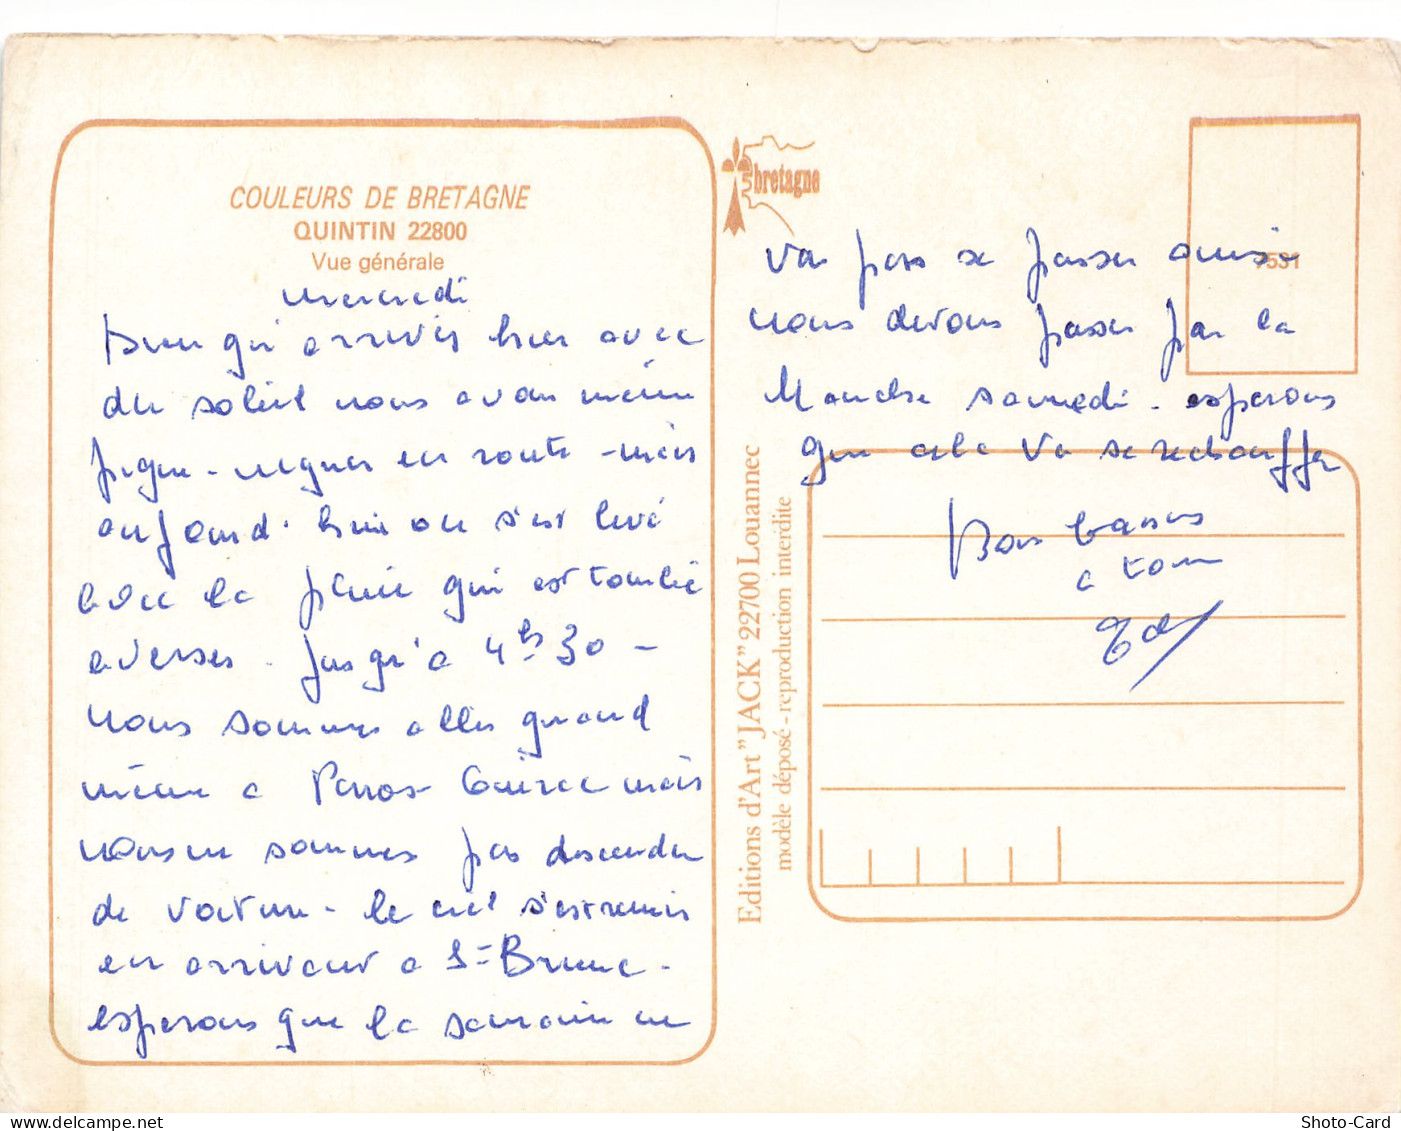 COULEURS DE BRETAGNE
QUINTIN 22800
Vue générale
mercredi
Bien qu'arrivés hier avec
du soleil nous avons même
pique-niquer en route - mais
aujourd'hui on s'est levé
avec la pluie qui est tombée
averses - jusqu'à 4hs 30 -
nous sommes allés quand
même a Perros Guirec mais
nous ne sommes pas descendu
de voiture - le ciel s'est remis
en arrivant a St Brieuc -
esperons que la semaine ne
bretagne
7531
va pas se passer ainsi
nous devons passer par la
Manche samedi - esperons
que cela va se rechauffer
Bons baisers
a tous
Editions d'Art "JACK" 22700 Louannec
modèle déposé - reproduction interdite
www.delcampe.net
Shoto-Card